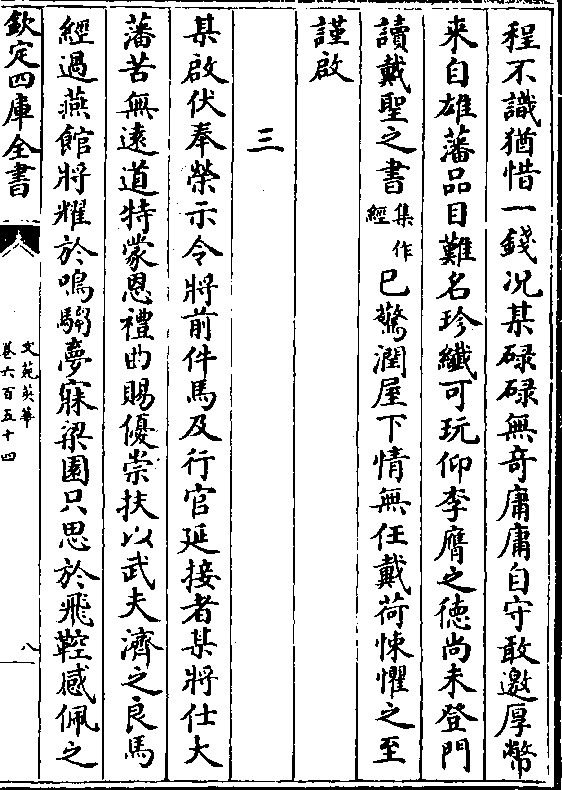 程不識猶惜一錢况某碌碌無竒庸庸自守敢邀厚幣
来自雄藩品目難名珍纎可玩仰李膺之徳尚未登門
讀戴聖之書集作經已驚潤屋下情無任戴荷悚懼之至
謹啟
三
某啟伏奉榮示令將前件馬及行官延接者某將仕大
藩苦無逺道特蒙恩禮曲賜優崇扶以武夫濟之良馬
經過燕館將耀於鳴騶夢寐梁園只思於飛鞚感佩之
欽定四庫全書
文苑英華
卷六百五十四
八